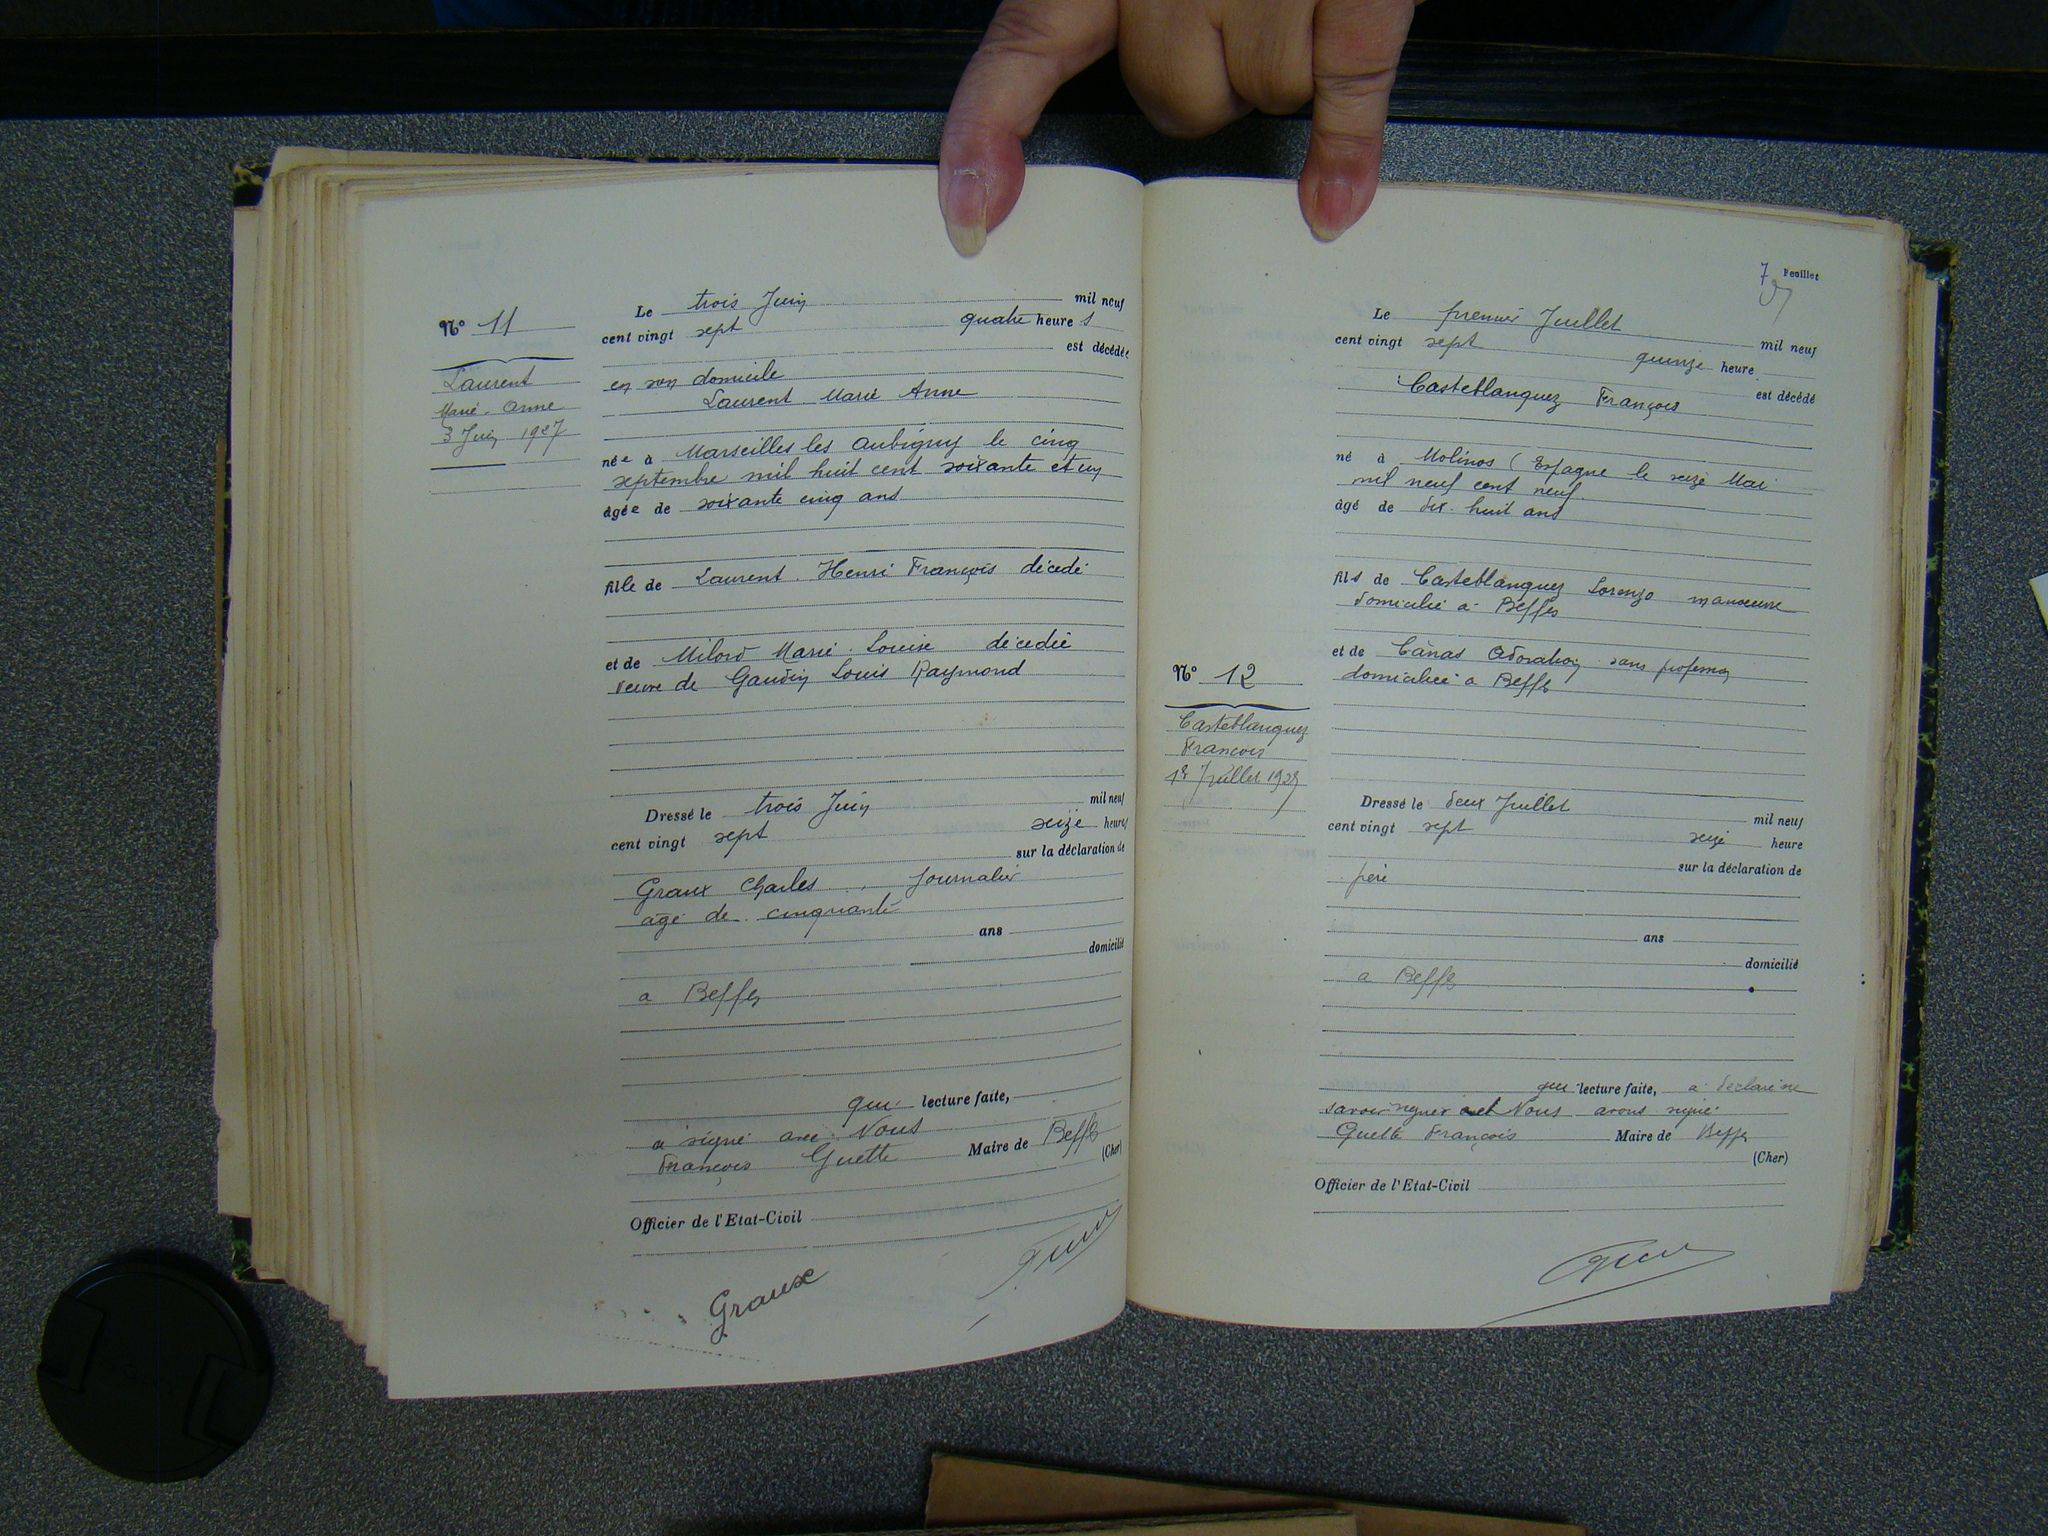 N° 11
Laurent
Marie-Anne
3 Juin 1927
Le trois Juin mil neuf
cent vingt sept quatre heures
est décédée
en son domicile
Laurent Marie Anne
née à Marseilles les Aubigny le cinq
septembre mil huit cent soixante et un
âgée de soixante cinq ans
fille de Laurent. Henri François décédé
et de Milord Marie. Louise décédée
veuve de Gaudin Louis Raymond
Dressé le trois Juin mil neuf
cent vingt sept seize heures
sur la déclaration de
Graux Charles, Journalier
âgé de cinquante
ans
domicilié
a Beffes
qui lecture faite,
a signé avec Nous
François Guette Maire de Beffes
(Cher)
Officier de l'Etat-Civil
Graux
7 Feuillet
N° 12
Casteblanquez
François
1er Juillet 1927
Le premier Juillet mil neuf
cent vingt sept quinze heure
est décédé
Casteblanquez François
né à Molinos (Espagne le seize Mai
mil neuf cent neuf.
âgé de dix-huit ans
fils de Casteblanquez Lorenzo manœuvre
domicilié à Beffes
et de Cañas Adoration sans profession
domiciliée a Beffes
Dressé le deux Juillet mil neuf
cent vingt sept seize heure
sur la déclaration de
père
ans
domicilié
a Beffes
qui lecture faite, a déclaré ne
savoir signer et Nous avons signé
Guette François Maire de Beffes
(Cher)
Officier de l'Etat-Civil